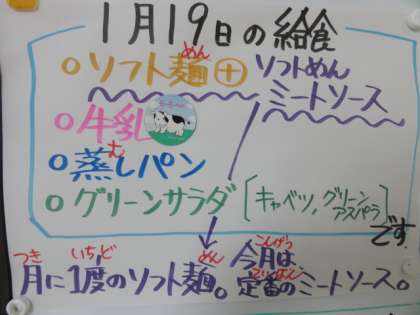 1月19日の給食
○ソフト麺⊕ソフトめん
めん
ミートソース
○牛乳
○蒸しパン
む
○グリーンサラダ[キャベツ,グリーンアスパラ]
です
つき いちど めん こんげつ
月に1度のソフト麺。今月は
ていばん
定番のミートソース。